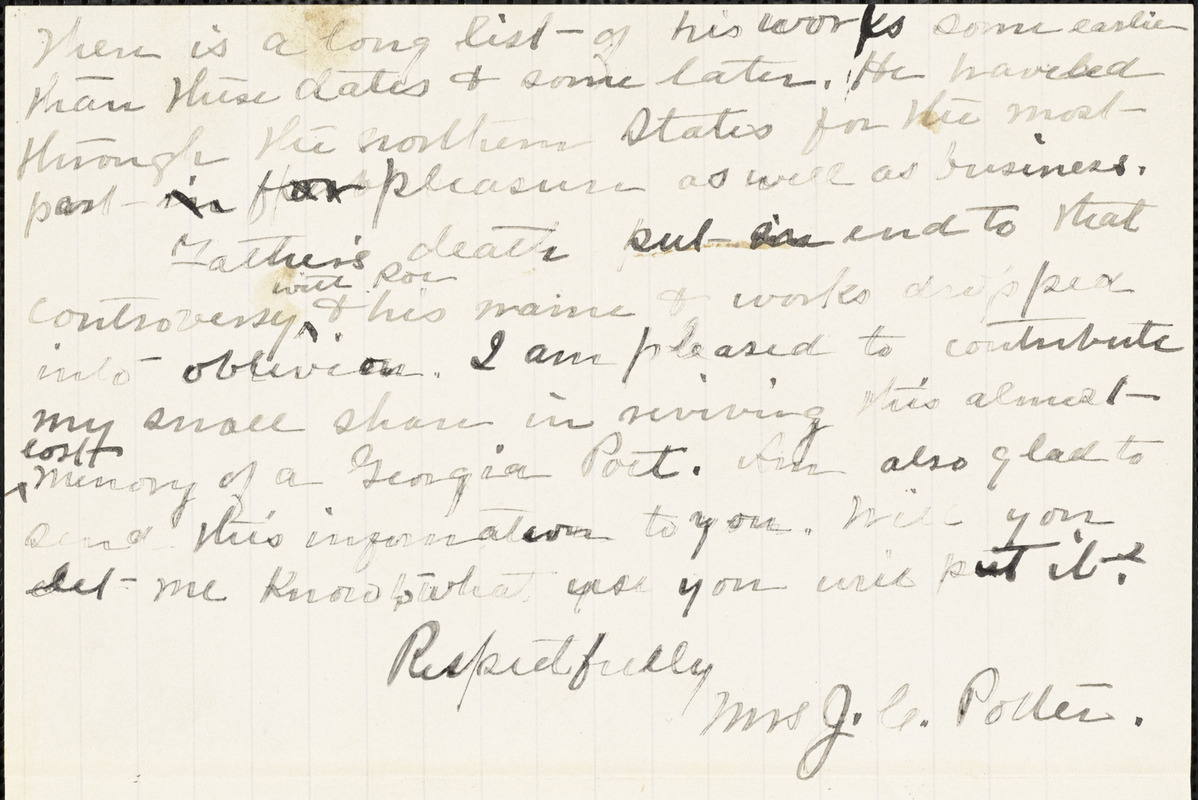 There is a long list of his works some earlier
than these dates & some later. He traveled
through the northern States for the most
part in for pleasure as well as business.
Father's death put an end to that
with Poe
controversy & his name & works dropped
into oblivion. I am pleased to contribute
my small share in reviving this almost
lost
Memory of a Georgia Poet. Am also glad to
send this information to you. Will you
let me know what use you will put it?
Respectfully
Mrs J. C. Potter.